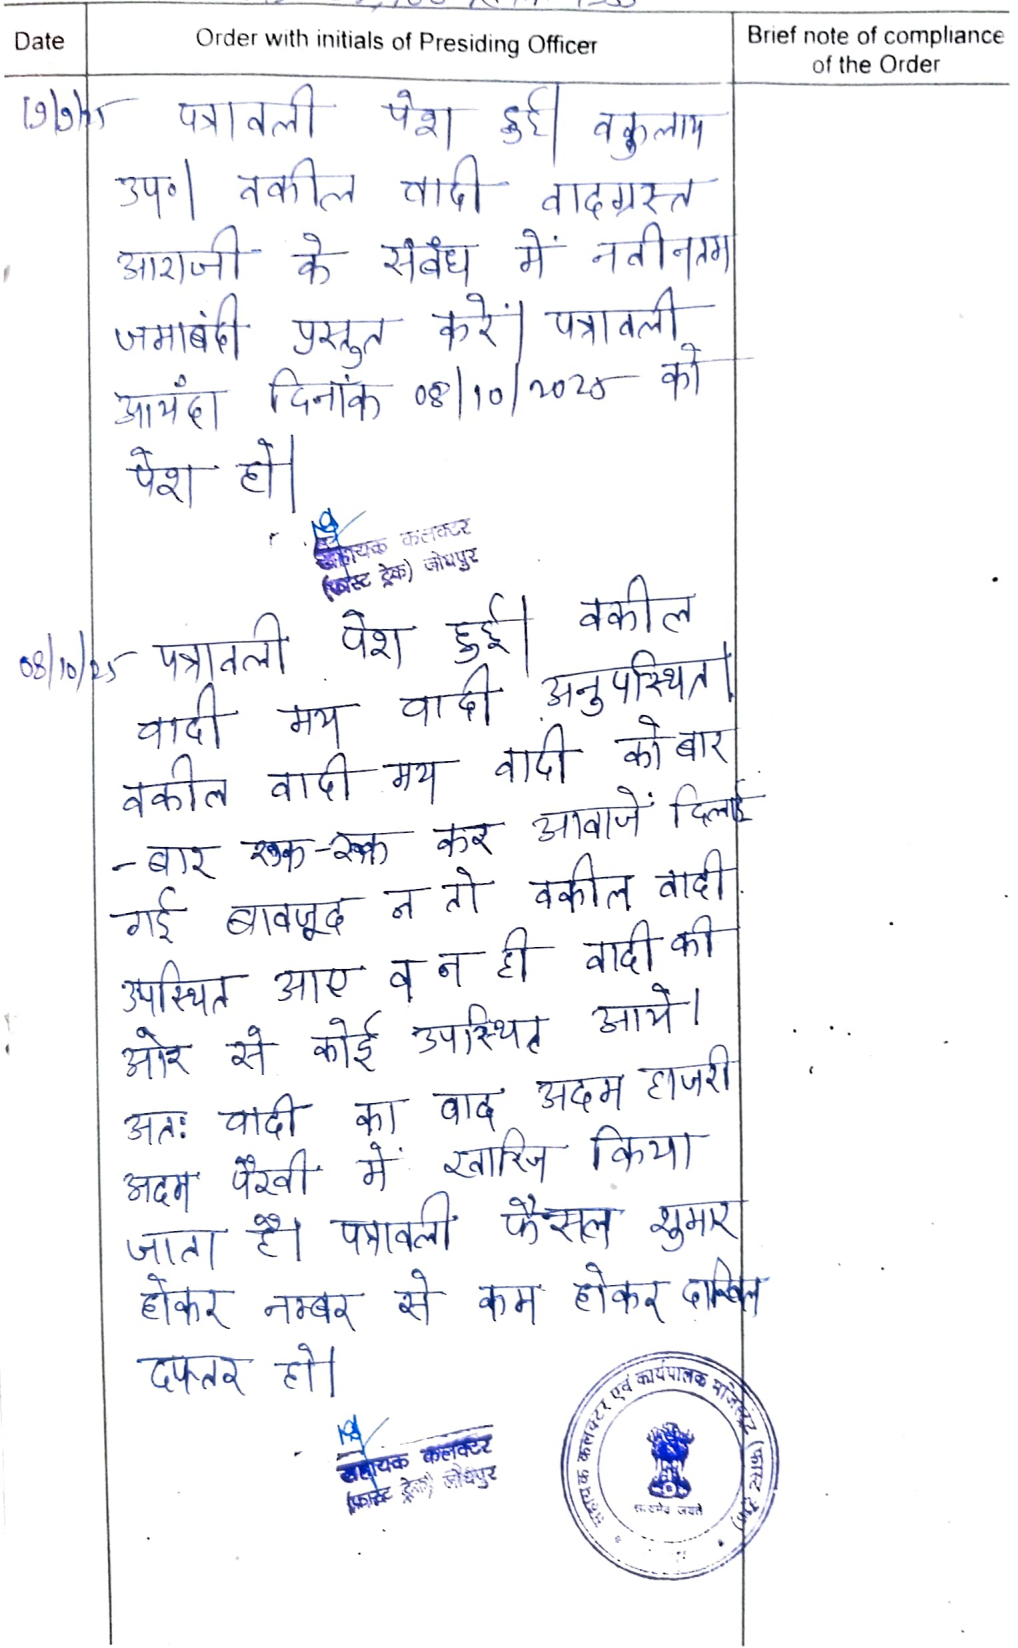 Date
Order with initials of Presiding Officer
Brief note of compliance
of the Order
पत्रावली पेश हुई। वकुलाय
उप०। वकील वादी वादग्रस्त
आराजी के संबंध में नवीनतम
जमाबंदी प्रस्तुत करें। पत्रावली
आयंदा दिनांक 08/10/2025 को
पेश हो।
सहायक कलक्टर
(फास्ट ट्रेक) जोधपुर
08/10/25 पत्रावली पेश हुई। वकील
वादी मय वादी अनुपस्थित।
वकील वादी मय वादी को बार
-बार रूक-रूक कर आवाजें दिलाई
गई बावजूद न तो वकील वादी
उपस्थित आए व न ही वादी की
ओर से कोई उपस्थित आये।
अतः वादी का वाद अदम हाजरी
अदम पैरवी में खारिज किया
जाता है। पत्रावली फैसल शुमार
होकर नम्बर से कम होकर दाखिल
दफ्तर हो।
सहायक कलक्टर
(फास्ट ट्रेक) जोधपुर
सहायक कलक्टर एवं कार्यपालक मजिस्ट्रेट (फास्ट ट्रेक)
सत्यमेव जयते